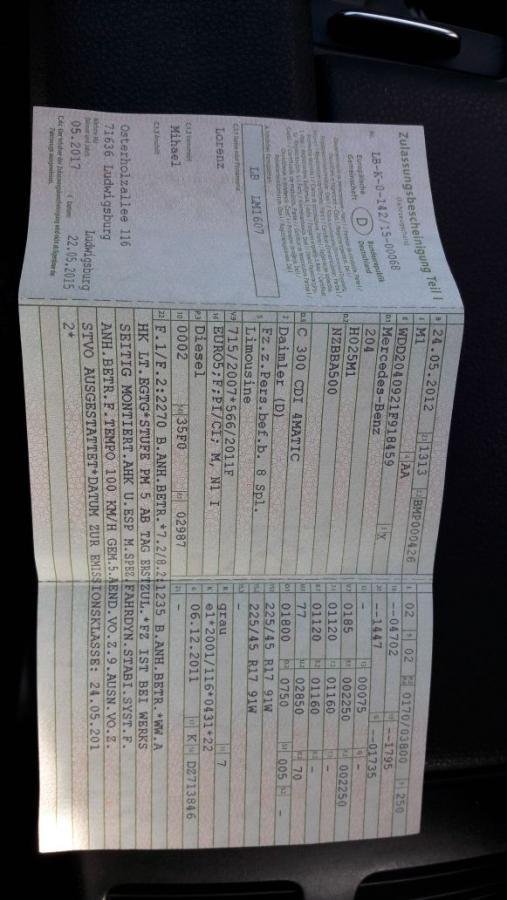 Zulassungsbescheinigung Teil I
(Fahrzeugschein)
Nr. LB-K-0-142/15-00068
Europäische
Gemeinschaft
D
Bundesrepublik
Deutschland
LB LM1607
C.1.1 Name oder Firmenname
Lorenz
C.1.2 Vorname(n)
Mihael
C.1.3 Anschrift
Osterholzallee 116
71636 Ludwigsburg
05.2017
Ludwigsburg
22.05.2015
B 24.05.2012 1313 BMP000426
M1 AA
WDD2040921F918459 X
Mercedes-Benz
204
H025M1
NZBBA500
C 300 CDI 4MATIC
Daimler (D)
Fz.z.Pers.bef.b. 8 Spl.
Limousine
715/2007*566/2011F
EURO5;F;PI/CI; M, N1 I
Diesel
0002 35F0 02987
02 02 0170/03800 250
--04702 --1795
--1447 --01735
- 00075 -
0185 002250 002250
01120 01160 -
01120 01160 -
77 02850 70
01800 0750 005 -
225/45 R17 91W
225/45 R17 91W
-
grau 7
e1*2001/116*0431*22
06.12.2011 K DZ713846
-
F.1/F.2:2270 B.ANH.BETR.*7.2/8.2:1235 B.ANH.BETR.*WW.A
HK LT.EGTG*STUFE PM 5 AB TAG ERSTZUL.*FZ IST BEI WERKS
SEITIG MONTIERT.AHK U.ESP M.SPEZ.FAHRDYN.STABI.SYST.F.
ANH.BETR.F.TEMPO 100 KM/H GEM.5.AEND.VO.Z.9.AUSN.VO.Z.
STVO AUSGESTATTET*DATUM ZUR EMISSIONSKLASSE: 24.05.201
2*